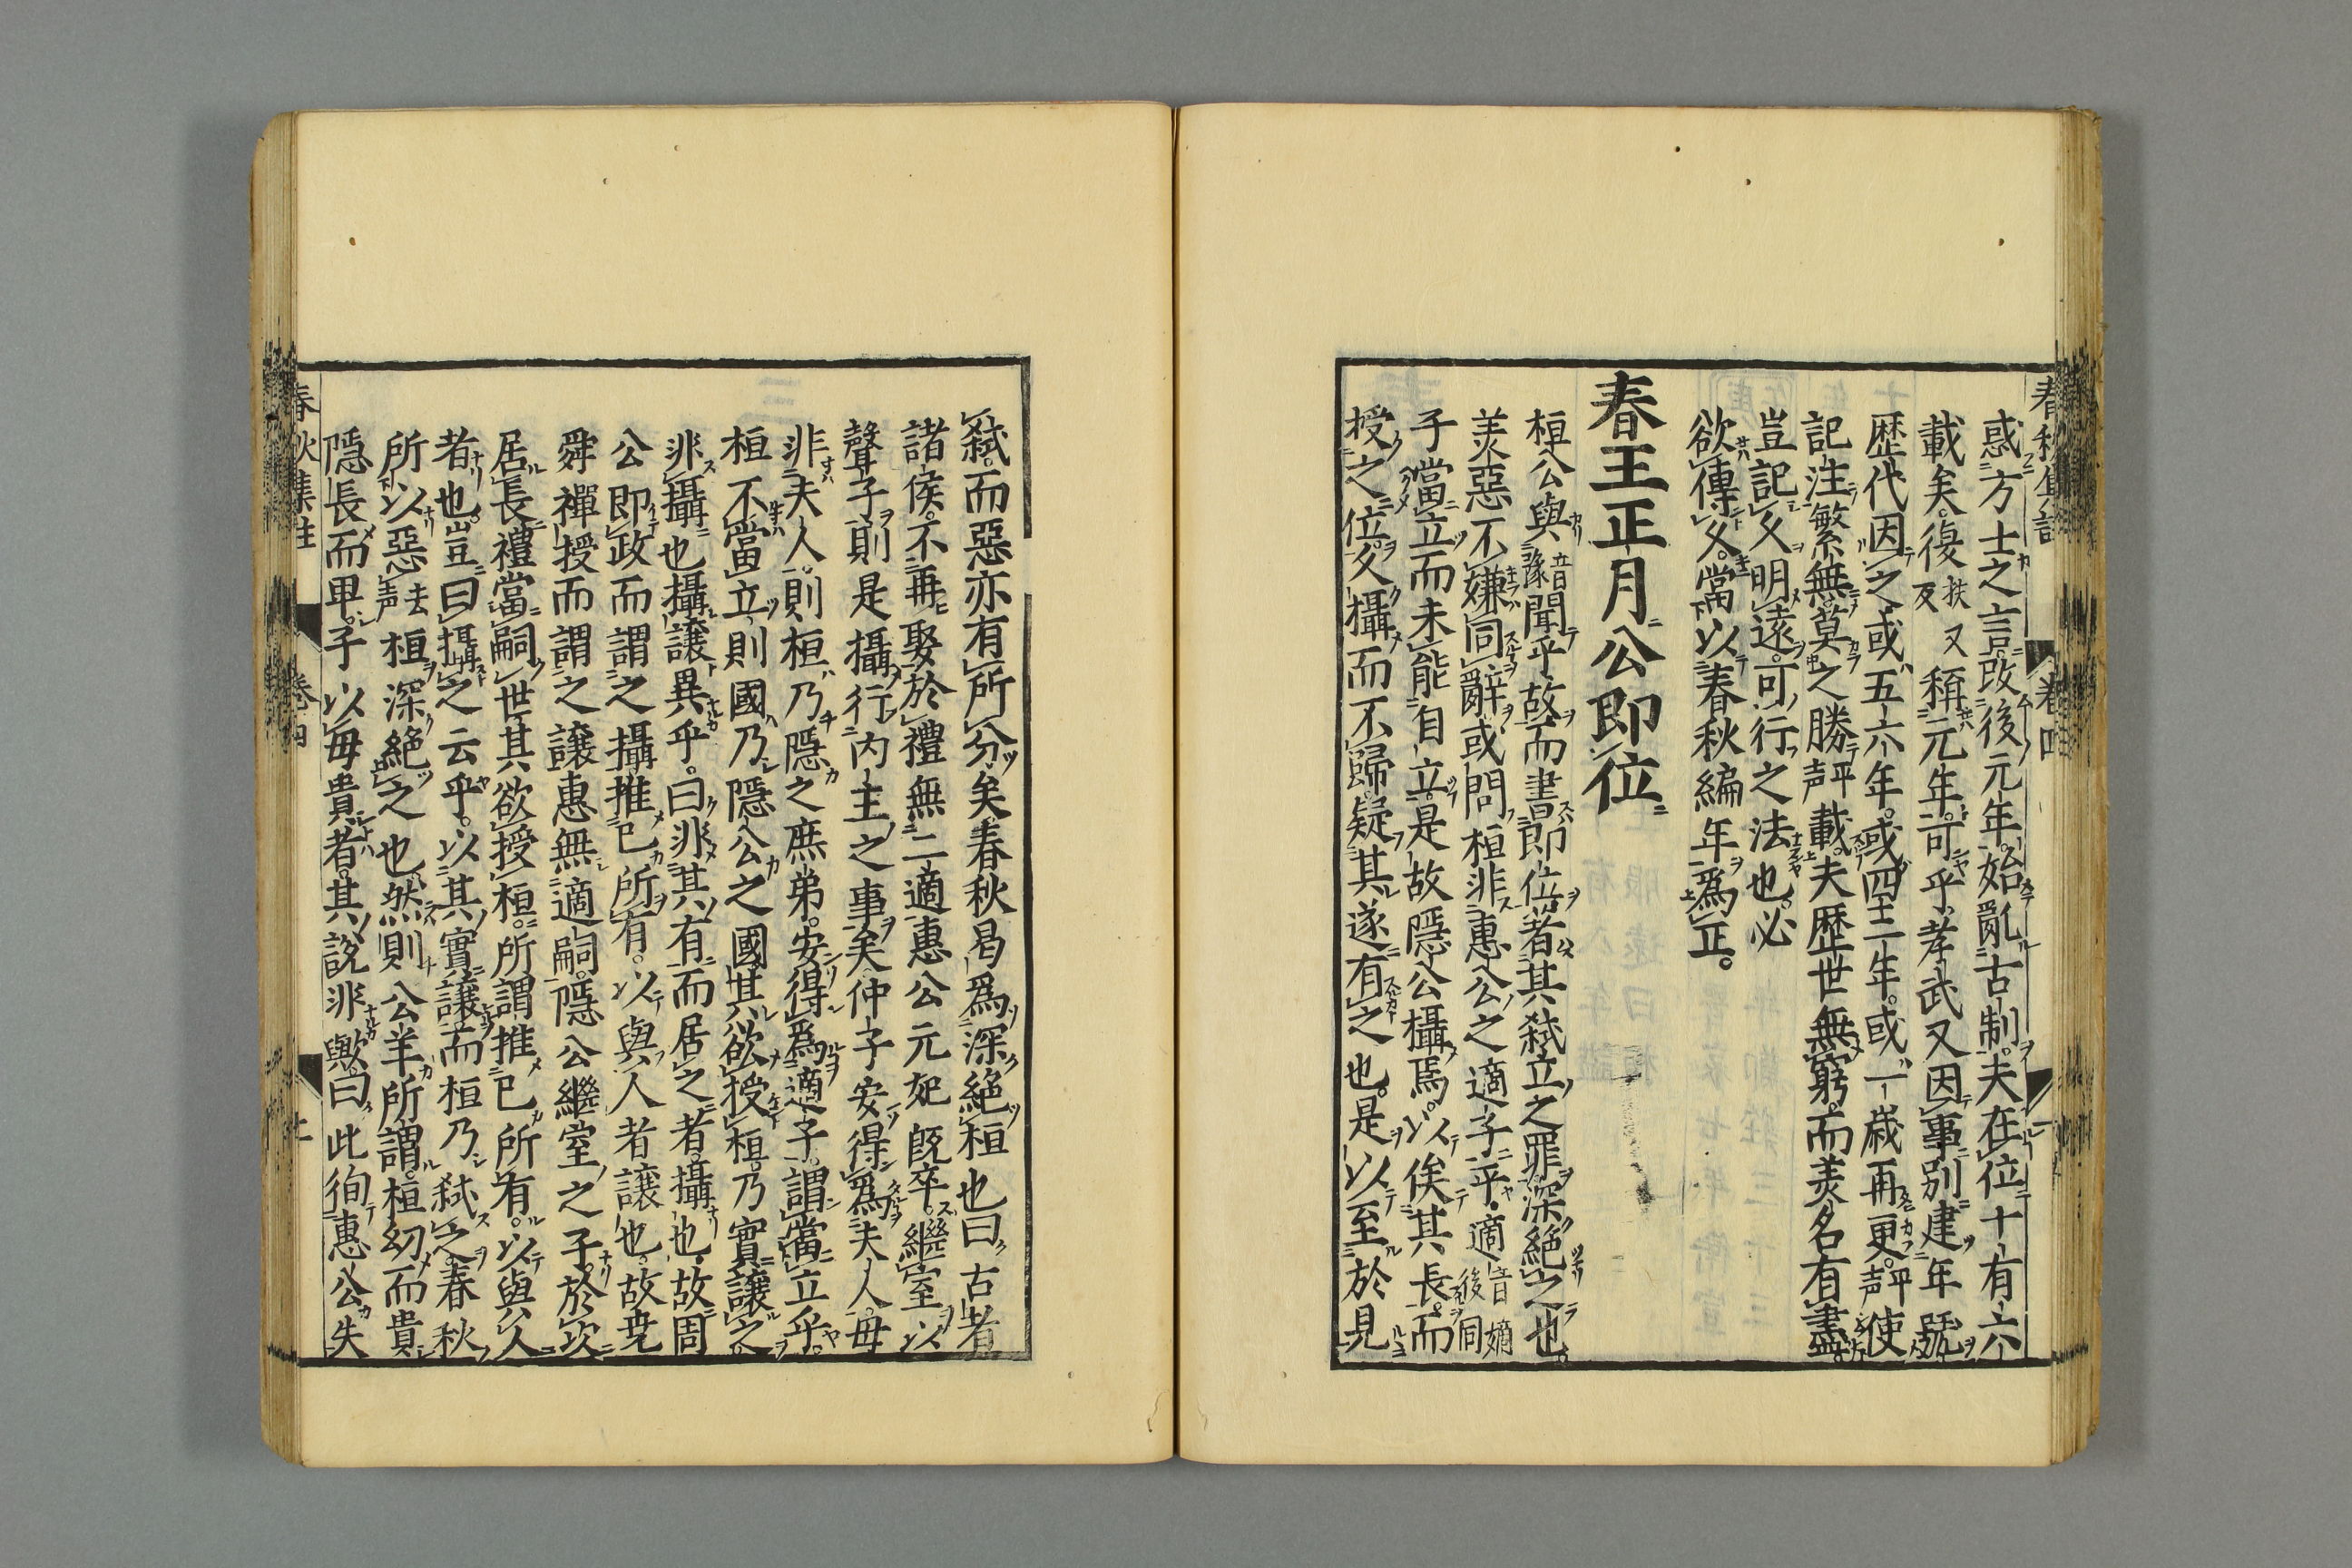 春秋集註 卷四 一
惑方士之言改後元年始亂古制夫在位十有六
載矣復扶又反稱元年可乎孝武又因事別建年號
歷代因之或五六年或四三年或一歲再更平声使
記注繁無莫之勝平声載夫歷世無窮而羙名有盡
豈記久明遠可行之法也必
欲傳久當以春秋編年爲正
春王正月公即位
桓公與音豫聞乎故而書即位者其弑立之罪深絕之也
羙惡不嫌同辭或問桓非惠公之適子乎適音嫡後同
子當立而未能自立是故隱公攝焉以俟其長而
授之位久攝而不歸疑其遂有之也是以至於見
弑而惡亦有所分矣春秋曷爲深絕桓也曰古者
諸侯不再娶於禮無二適惠公元妃既卒繼室以
聲子則是攝行內主之事矣仲子安得爲夫人毋
非夫人則桓乃隱之庶弟安得爲適子謂當立乎
桓不當立則國乃隱公之國其欲授桓乃實讓之
非攝也攝讓異乎曰非其有而居之者攝也故周
公即政而謂之攝推已所有以與人者讓也故尭
舜禪授而謂之讓惠無適嗣隱公繼室之子於次
居長禮當嗣世其欲授桓所謂推已所有以與人
者也豈曰攝之云乎以其實讓而桓乃弑之春秋
所以惡去声桓深絕之也然則公羊所謂桓幼而貴
隱長而卑子以毋貴者其說非歟曰此徇惠公失
春秋集註 卷四